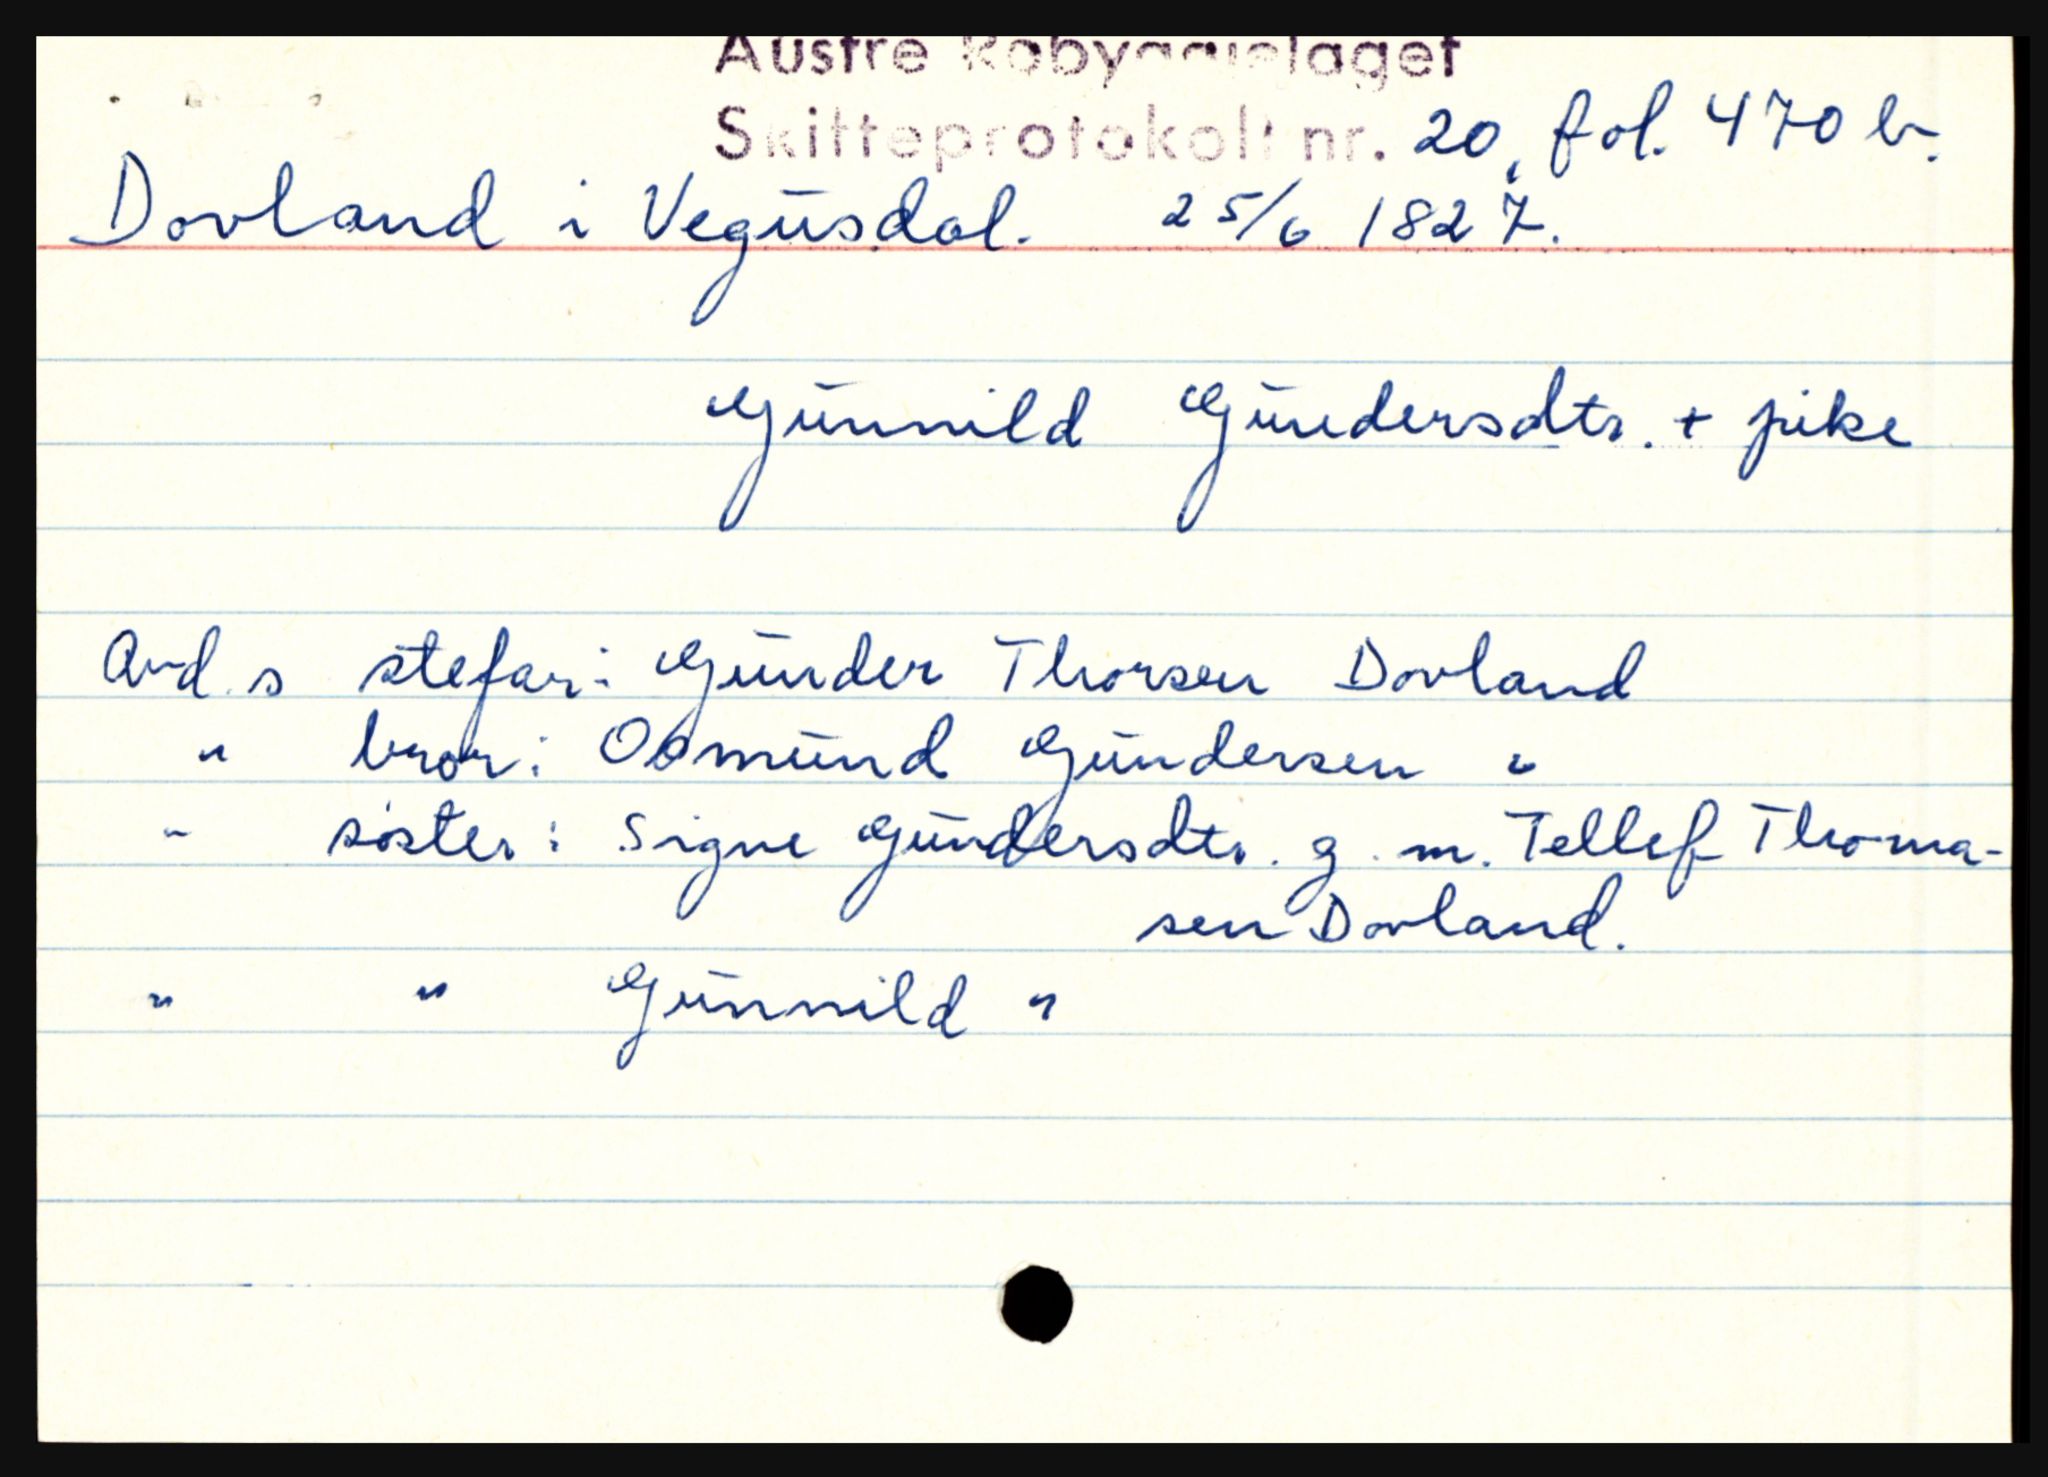 Austre Råbyggjelaget
Skifteprotokoll nr. 20, fol. 470 b.
Dovland i Vegusdal. 25/6 1827.
Gunnild Gundersdtr. + pike
Avd. s stefar: Gunder Thorsen Dovland
" bror: Osmund Gundersen "
" søster: Signe Gundersdtr. g. m. Tellef Thoma-
sen Dovland.
" " Gunnild "